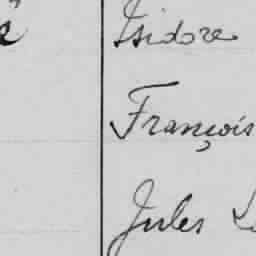 Isidore
François
Jules